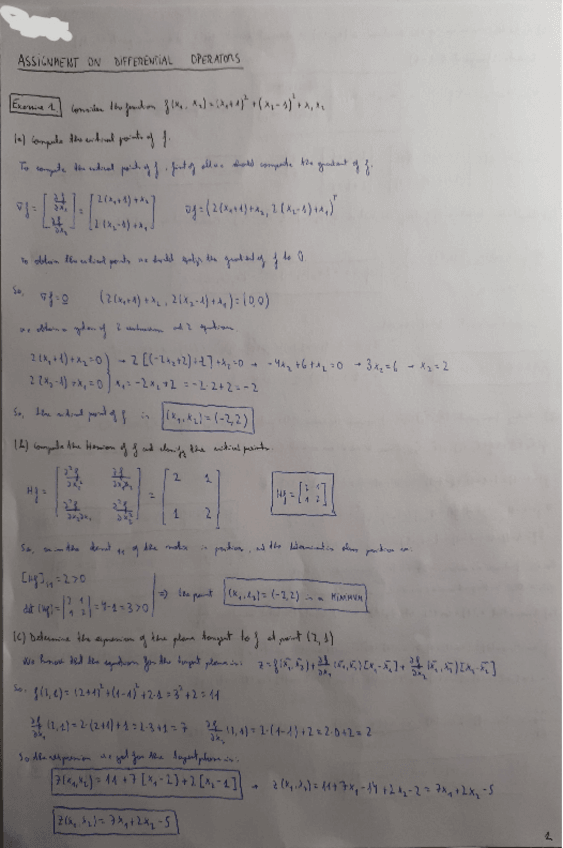 ASSIGNMENT ON DIFFERENTIAL OPERATORS
Exercise 1 Consider the function f(x₁, x₂) = (x₁+1)² + (x₂-1)² + x₁x₂
(a) Compute the critical points of f.
To compute the critical points of f, first of all we should compute the gradient of f.
∇f = [∂f/∂x₁ ; ∂f/∂x₂] = [2(x₁+1)+x₂ ; 2(x₂-1)+x₁] ∇f = (2(x₁+1)+x₂, 2(x₂-1)+x₁)ᵀ
To obtain the critical points we should the gradient of f to 0
So, ∇f = 0 (2(x₁+1)+x₂, 2(x₂-1)+x₁) = (0,0)
we obtain a system of 2 and 2 equations
2(x₁+1)+x₂=0 → 2[(-2x₂+2)+1]+x₂=0 → -4x₂+6+x₂=0 → 3x₂=6 → x₂=2
2(x₂-1)+x₁=0 x₁=-2x₂+2 = -2·2+2 = -2
So, the critical point of f is (x₁, x₂) = (-2,2)
(b) Compute the Hessian of f and classify the critical points.
Hf = [∂²f/∂x₁² ∂²f/∂x₁∂x₂ ; ∂²f/∂x₂∂x₁ ∂²f/∂x₂²] = [2 1 ; 1 2] Hf = [2 1 ; 1 2]
So, as the element ₁₁ of the matrix is positive, and the determinant is also positive
[Hf]₁₁ = 2 > 0
det(Hf) = |2 1 ; 1 2| = 4-1 = 3 > 0 ⇒ the point (x₁, x₂) = (-2,2) is a MINIMUM
(c) Determine the expression of the plane tangent to f at point (2,1)
We know that the equation for the tangent plane is: z = f(x̄₁, x̄₂) + ∂f/∂x₁ (x̄₁, x̄₂)[x₁-x̄₁] + ∂f/∂x₂ (x̄₁, x̄₂)[x₂-x̄₂]
So, f(2,1) = (2+1)² + (1-1)² + 2·1 = 3² + 2 = 11
∂f/∂x₁ (2,1) = 2·(2+1)+1 = 2·3+1 = 7 ∂f/∂x₂ (2,1) = 2·(1-1)+2 = 2·0+2 = 2
So the expression we get for the tangent plane is:
z(x₁,x₂) = 11+7[x₁-2]+2[x₂-1] → z(x₁,x₂) = 11+7x₁-14+2x₂-2 = 7x₁+2x₂-5
z(x₁,x₂) = 7x₁+2x₂-5